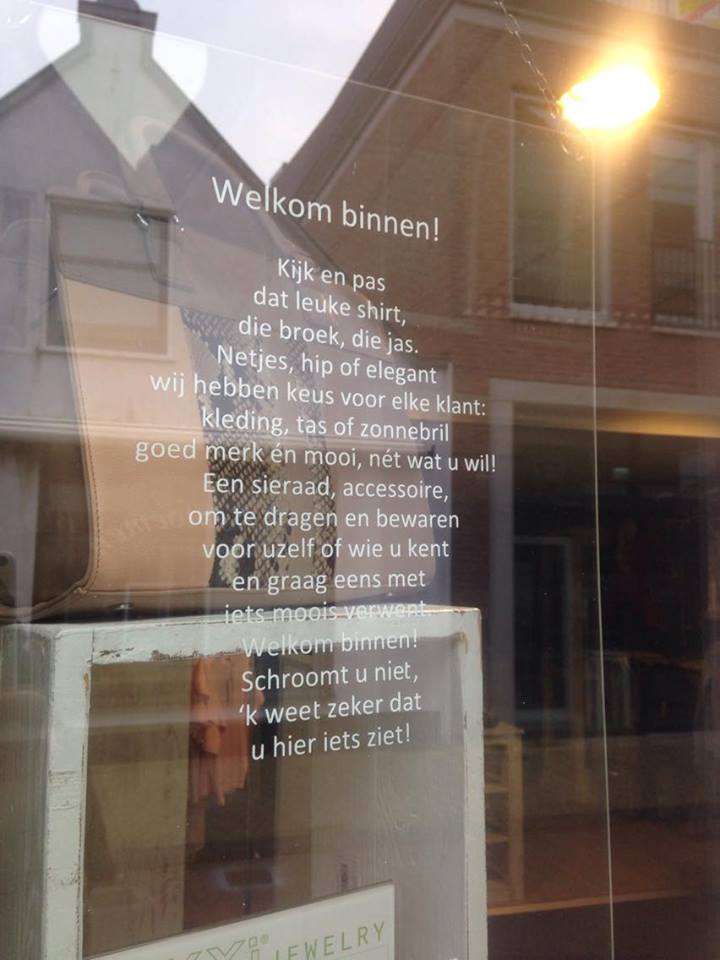 Welkom binnen!
Kijk en pas
dat leuke shirt,
die broek, die jas.
Netjes, hip of elegant
wij hebben keus voor elke klant:
kleding, tas of zonnebril
goed merk én mooi, nét wat u wil!
Een sieraad, accessoire,
om te dragen en bewaren
voor uzelf of wie u kent
en graag eens met
iets moois verwent.
Welkom binnen!
Schroomt u niet,
‘k weet zeker dat
u hier iets ziet!
JEWELRY